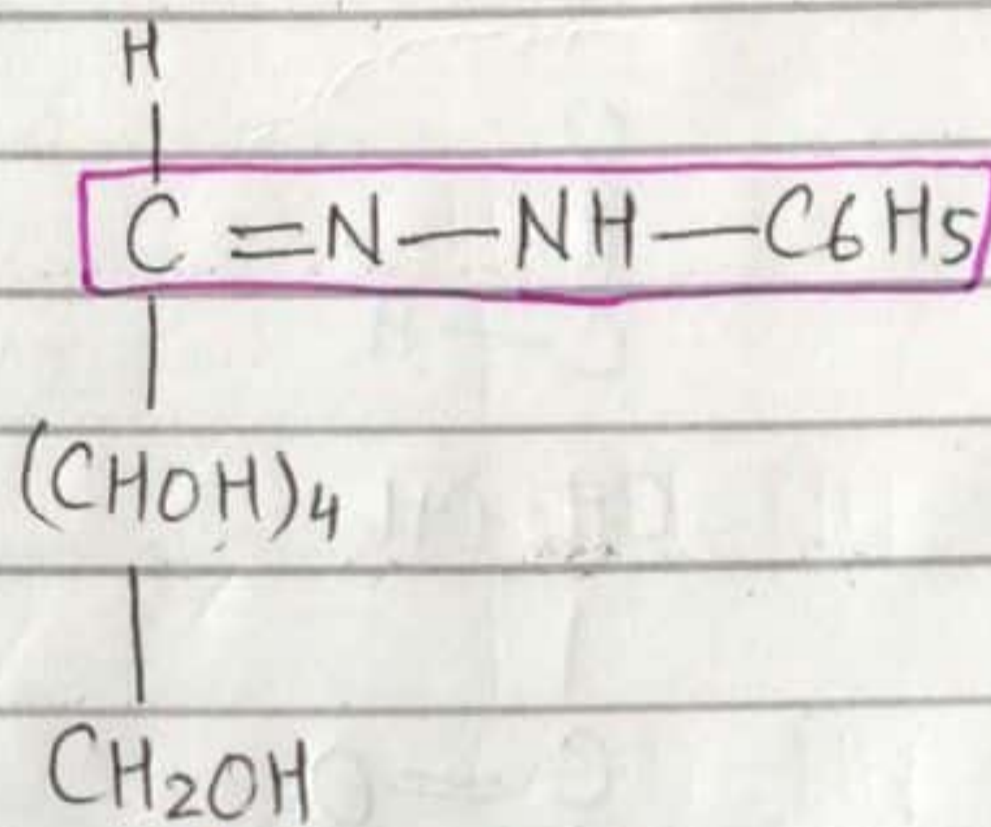 H
C=N—NH—C6H5
(CHOH)4
CH2OH